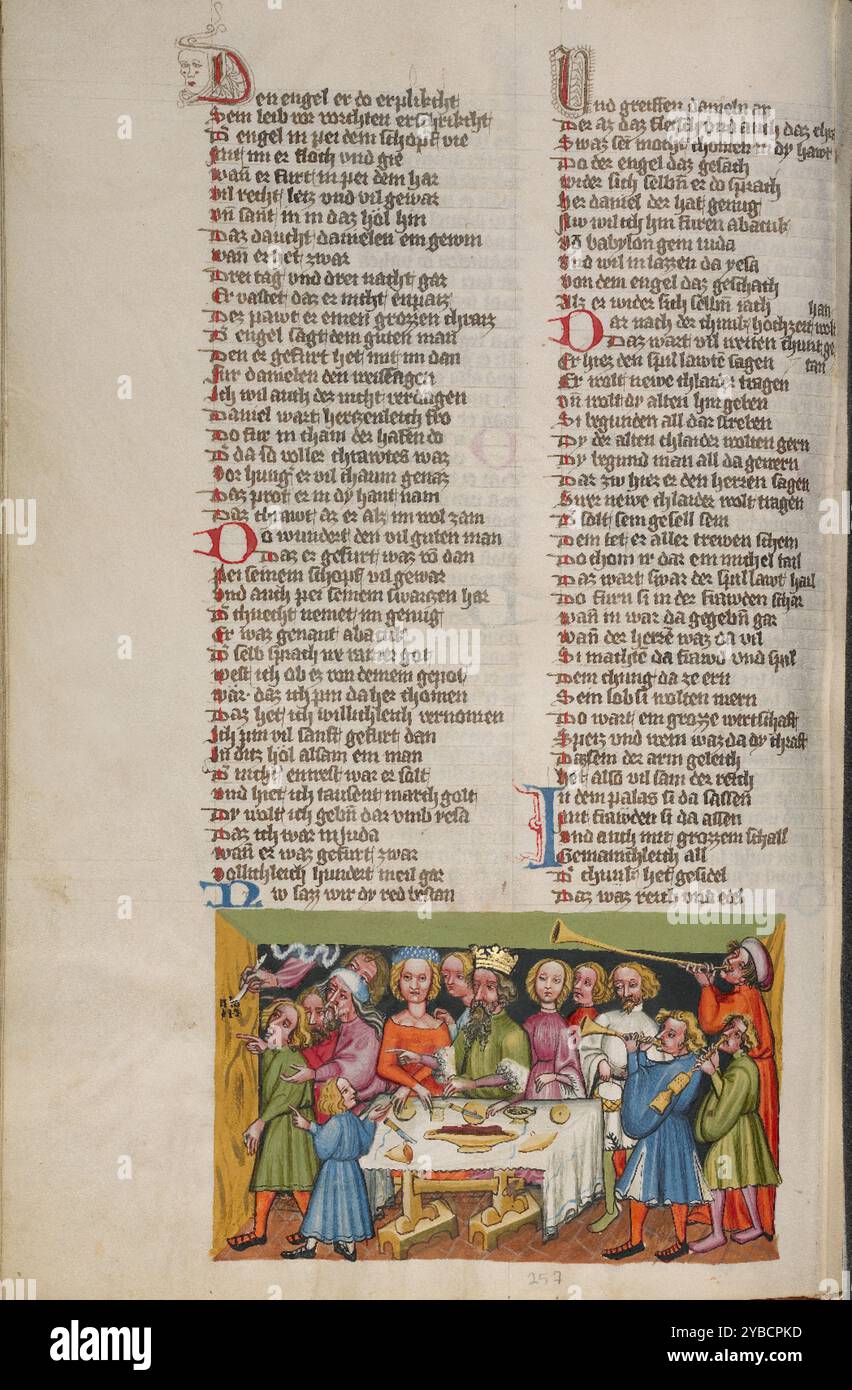 Den engel er do erplikcht
Sein leib vor vorchten erschrikcht
Der engel in pei dem schopf vie
Mit im er floch vnd gie
Wan er furt in pei dem har
Vil recht letz vnd vil gewar
Vn sant in in daz hol hin
Daz daucht danielen ein gewin
Wan er het zwar
Drei tag vnd drei nacht gar
Er vastet daz er nicht enpaiz
Dez pawt er einen grozzen chraiz
Der engel sagt dem guten man
Den er gefurt het mit im dan
Fur danielen den weissagen
Ich wil auch dez nicht verdagen
Daniel wart hertzenleich fro
Do fur in cham der hafen do
Der da so voller chrawtes waz
Vor hunger er vil chaum genaz
Daz prot er in dy hant nam
Daz chrawt az er alz im wol zam
Do wundert den vil guten man
Daz er gefurt waz von dan
Pei seinem schopf vil gewar
Vnd auch pei seinem swartzen har
Der chnecht nemet im genug
Er waz genant abacuk
Der selb sprach
West ich ob er von deinem gepot
War daz ich pin da her chomen
Daz het ich willichleich vernomen
Ich pin vil sanft gefurt dan
In ditz hol alsam ein man
Der nicht enwest war er solt
Vnd hiet ich tausent march golt
Dy wolt ich gebn dar vmb yesa
Daz ich war in juda
Wan er waz gefurt zwar
Vollichleich hundert meil gar
Nv lazz wir dy red bestan
Vnd greiffen danieln an
Der az daz fleisch vnd auch daz
Swaz sein mocht chomen in dy hawt
Do der engel daz gesach
Wider sich selbn er do sprach
Her daniel der hat genug
Nw wil ich hin furen abacuk
Von babylon gein juda
Vnd wil in lazzen da yesa
Von dem engel daz geschach
Alz er wider sich selbm iach
Dar nach der chunk hochzeit wolt han
Daz wart vil weiten chunt getan
Er hiez den spil lawten sagen
Er wolt newe chlaider tragen
Vn wolt dy alten hin geben
Si begunden all dar streben
Dy der alten chlaider wolten gern
Dy begund man all da gewern
Dar zw hiez er den herren sagen
Swer newe chlaider wolt tragen
Der solt sein gesell sein
Dem tet er aller trewen schein
Do chom ir dar ein michel tail
Daz wart swar der spil lawt hail
Do furn si in der frawden schar
Wan in war da gegebn gar
Wan der herren waz da vil
Si machten da frawd vnd spil
Dem chung da ze ern
Sein lob si wolten mern
Do wart ein grozze wirtschaft
Speiz vnd wein waz da dy chraft
Daz sein der arm geleich
Het also vil sam der reich
In dem palas si da sassen
Mit frawden si da assen
Vnd auch mit grozzem schall
Gemainchleich all
Der chunk het gesidel
Daz waz reich vnd edel
257
alamy
Image ID: 2YBCPKD
www.alamy.com